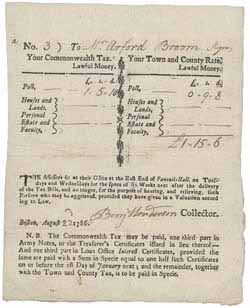 No. 3) To Mr Arford Broom Negro
Your Commonwealth Tax. Your Town and County Rate,
Lawful Money. Lawful Money.
Poll, 1-5-10 Poll, 0-9-8
Houses and Lands, Houses and Lands,
Personal Estate and Faculty, Personal Estate and Faculty,
£1-15-6
THE Assessors sit at their Office at the East End of Faneuil-Hall, on Tuesdays
and Wednesdays for the space of six Weeks next after the delivery
of Tax Bills, and no longer, for the purpose of hearing, and relieving, such
Persons who may be aggrieved, provided they have given in a Valuation according
to Law.
Benj Henderson Collector.
Boston, August 22 1786.
N. B. The Commonwealth Tax may be paid, one third part in
Army Notes, or the Treasurer's Certificates issued in lieu thereof—
and one third part in Loan Office Interest Certificates, provided the
same are paid with a Sum in Specie equal to one half such Certificates
on or before the 1st Day of January next; and the remainder, together
with the Town and County Tax, is to be paid in Specie.